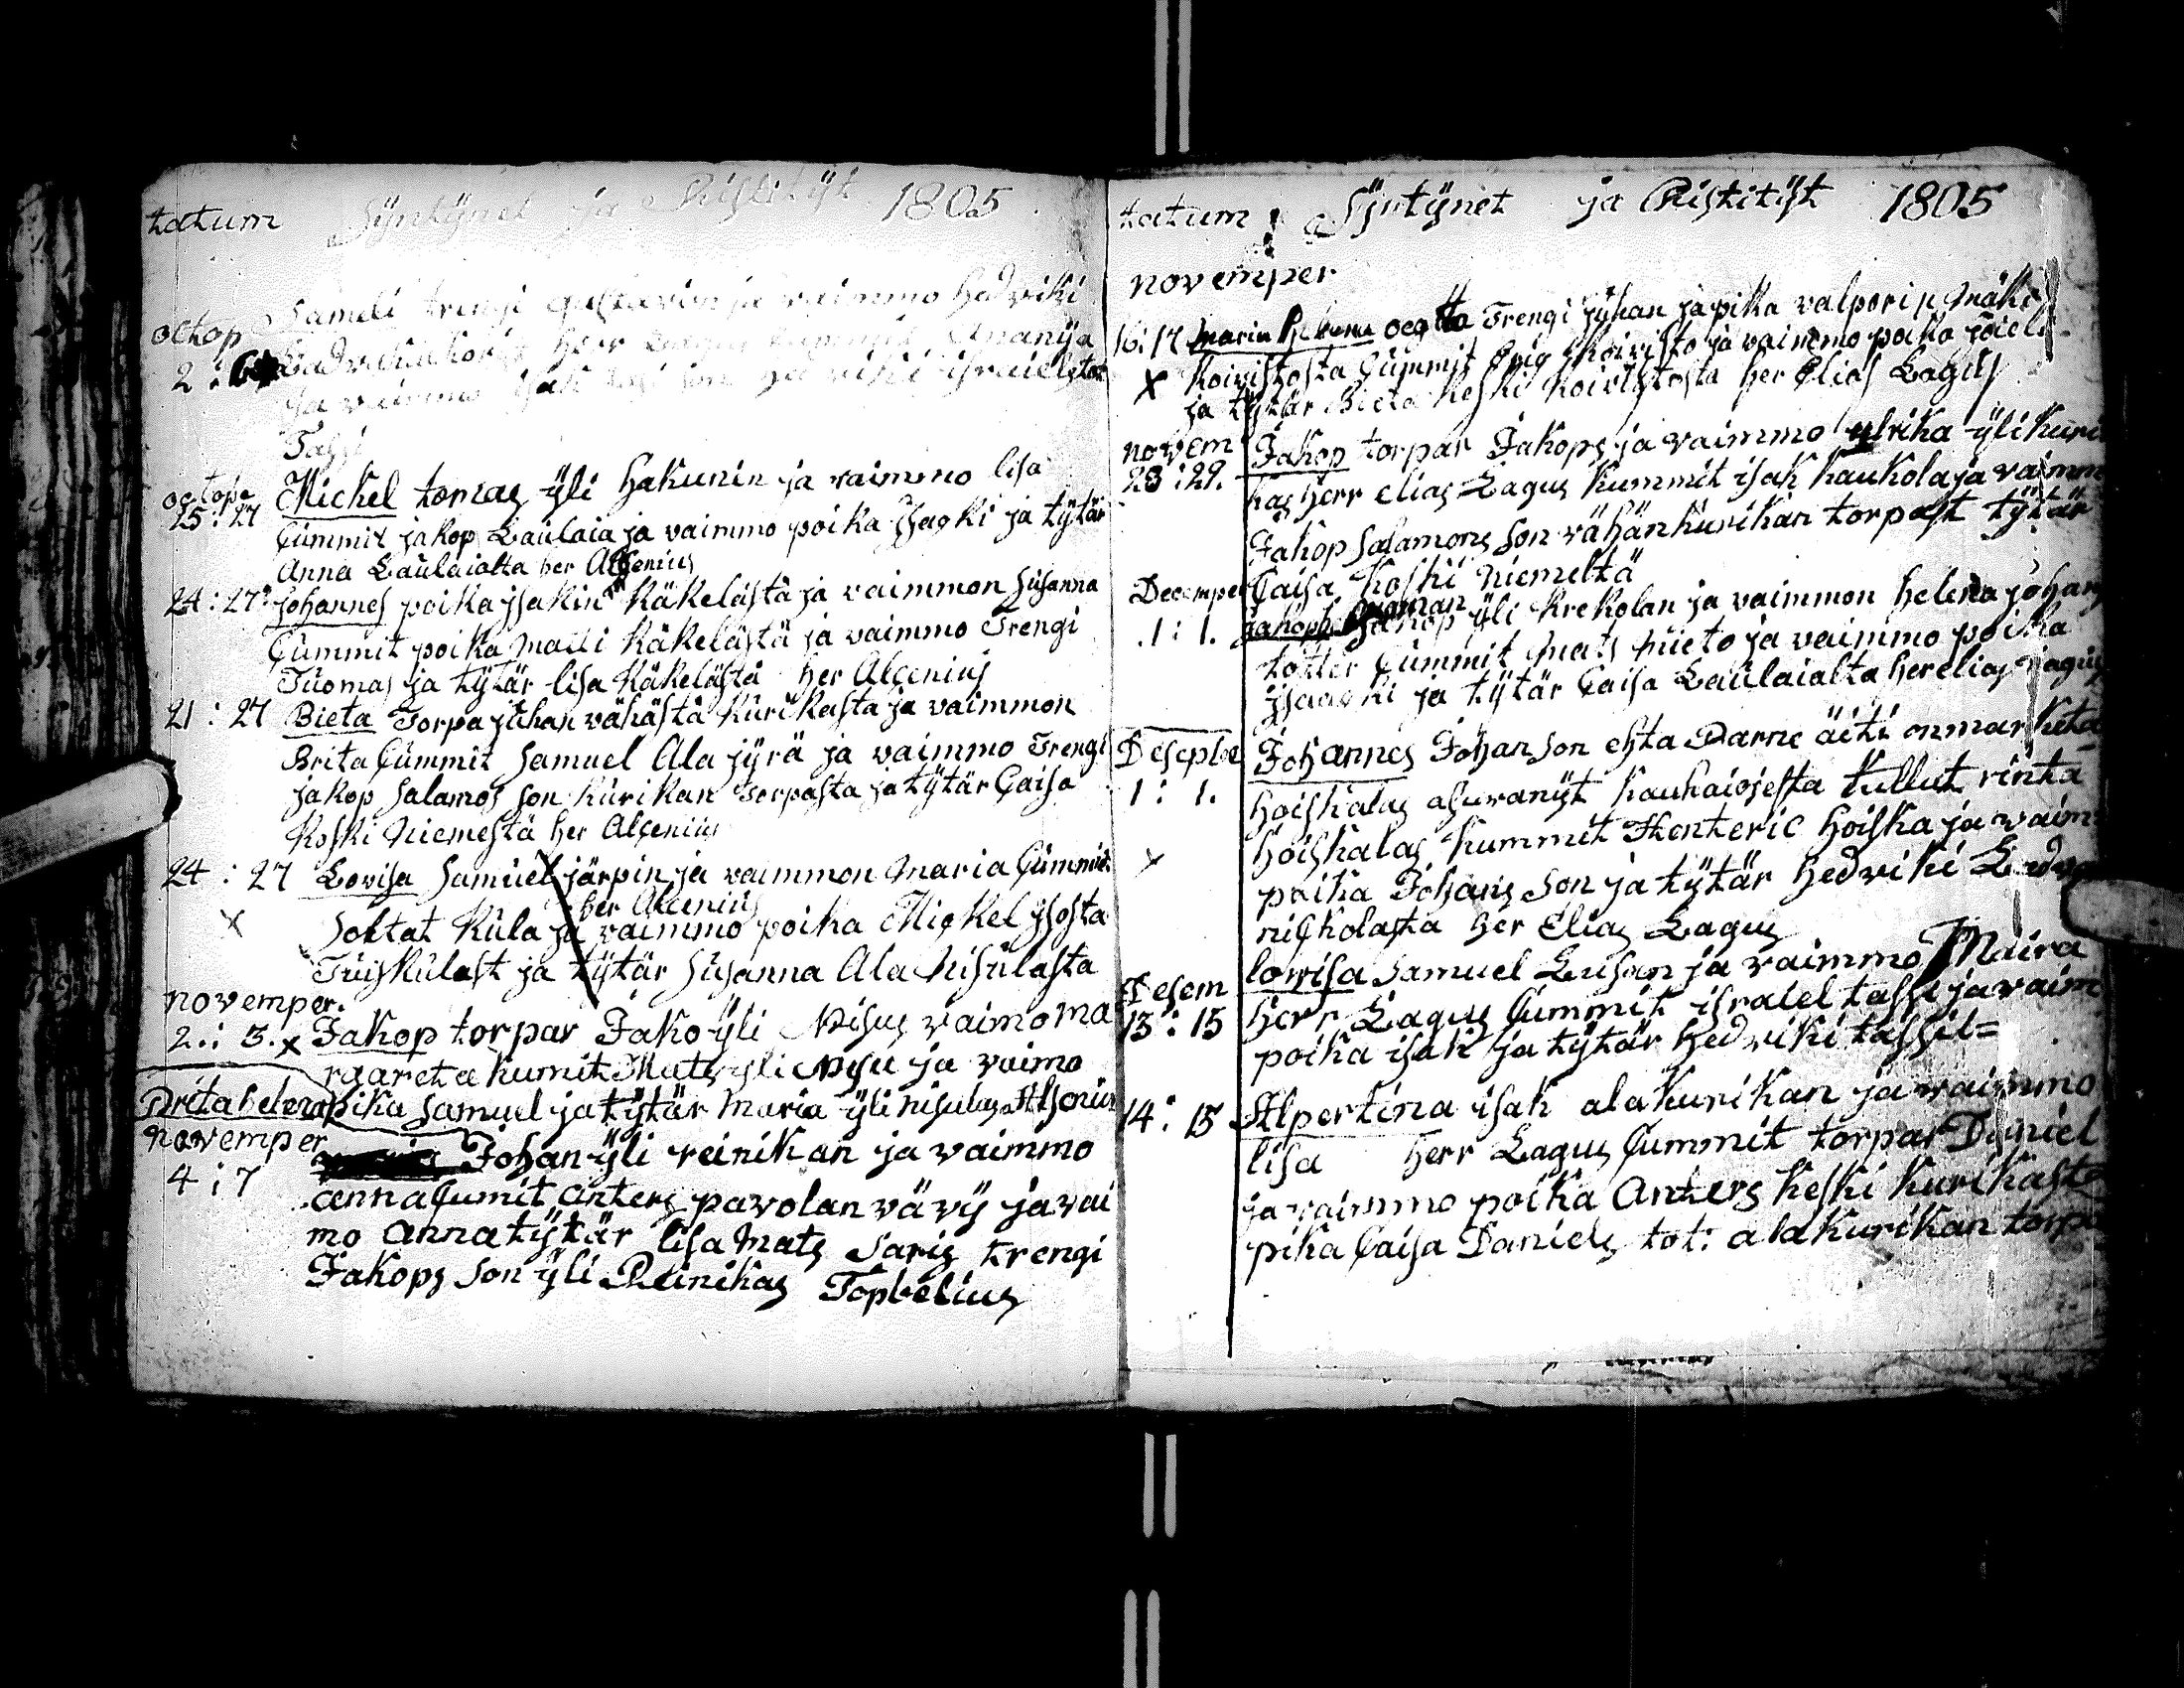 tatum Syntynet ja Ristityt 1805
Sameli trengi Gustavin ja vaimmo hedviki
octop
2 : 6
ja vaimmo isak hediviki israelstot
Tassi
octope Michel tomas yli hakunin ja vaimmo lisa
25 : 27 Cummit jakop Laulaia ja vaimmo poika Jsaski ja tytär
Anna Laulaialta her Alcenius
24 : 27 Johannes poika jsakin käkelästä ja vaimmon Susanna
Cummit poika matti käkelästä ja vaimmo Trengi
Tuomas ja tytär lisa käkelästä her Alcenius
21 : 27 Bieta Torpa juhan vähästä kurikasta ja vaimmon
Brita Cummit Samuel Ala jyrä ja vaimmo Trengi
jakop Salamos son kurikan torpasta ja tytär Caisa
koski Niemestä her Alcenius
24 : 27 Lovisa Samuel järpin ja vaimmon Maria Cummit
her Alcenius
x Soltat kula ja vaimmo poika Mickel jsosta
Tuiskulast ja tytär Susanna Ala Nisulasta
novemper.
2.: 3. x Jakop torpar Jako yli Nisus vaimo ma
rgareta kumit Mats yli Nisu ja vaimo
Brita helena pika Samuel ja tytär Maria yli nisulas
novemper
4 : 7 Johan yli reinikan ja vaimmo
anna Cumit anters pavolan vävy ja vai
mo anna tytär lisa Mats Saris trengi
Jakops son yli Reinikas Topbelius
tatum Syntynet ja Ristityt 1805
novemper
16 : 17 Maria helena Trengi juhan ja pika valpori
x koivistosta Cummit Erig koivisto ja vaimmo poika joieli
ja tytär Bieta keski koivistosta her Elias Lagus
novem Jakop torpar Jakops ja vaimmo ulrika yli kuri
28 : 29. kas herr elias Lagus kummit isak kaukola ja vaimmo
Jakop Salamons son vähänkurikan torpast tytär
Decemper Caisa koski niemeltä
1 : 1. jakop yli krekolan ja vaimmon helena johans
totter Cummit Mats nieto ja vaimmo poika
jsaacki ja tytär Caisa Laulaialta her elias Lagus
Desepbe Johannes Johan son ehta Barne äiti on marketa
1 : 1. hoiskalas asuvanyt kauhaiojesta tullut rinta
x hoiskalas kummit Henteric hoiska ja vaim
poika Johans son ja tytär hedviki
nickolasta her Elias Lagus
Desem lovisa Samuel Lusan ja vaimmo Maira
13 : 15 herr Lagus Cummit israiel tassi ja vaim
poika isak ja tytär hedviki tassil=
14 : 15 Alpertina isak alakurikan ja vaimmo
lisa herr Lagus Cummit torpar Daniel
ja vaimmo poika Anters keski kurikasta
pika Caisa Daniels tot: alakurikan torpa